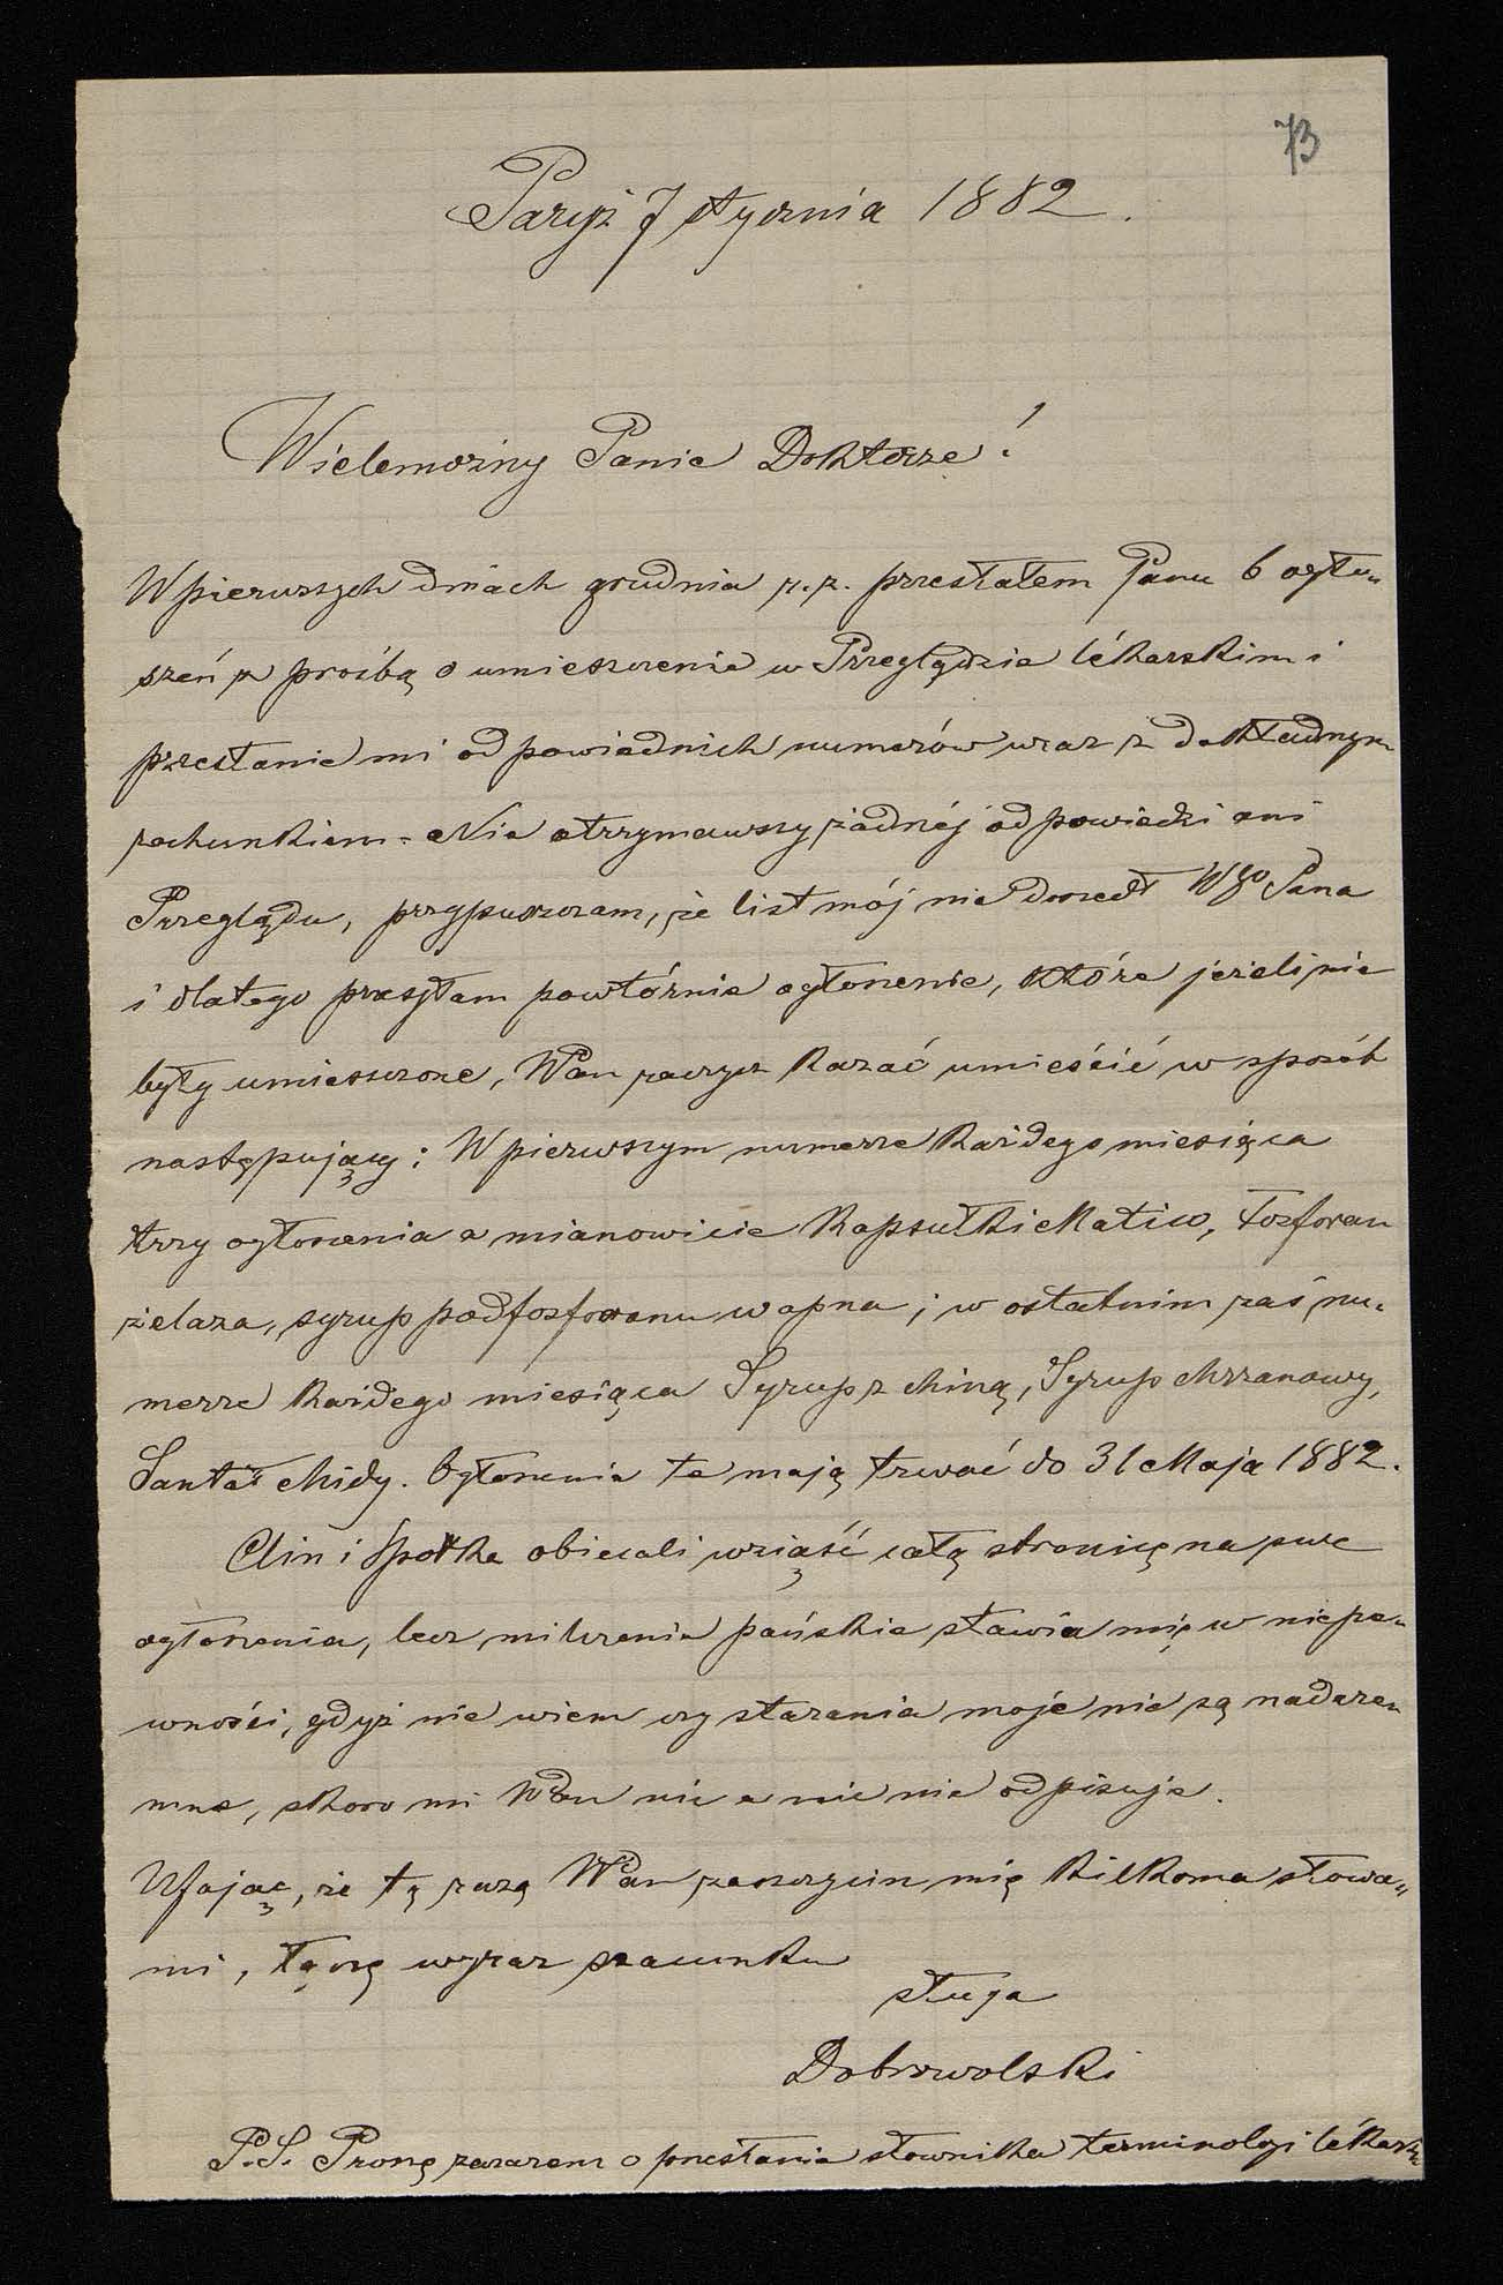 73
Paryż 7 stycznia 1882.
Wielemożny Panie Doktorze!
W pierwszych dniach grudnia r.z. przesłałem Panu 6 ogło-
szeń z prośbą o umieszczenie w Przeglądzie lékarskim i
przesłanie mi odpowiednich numerów wraz z dokładnym
rachunkiem. Nie otrzymawszy żadnéj odpowiedzi ani
Przeglądu, przypuszczam, że list mój nie doszedł WGo Pana
i dlatego przesyłam powtórnie ogłoszenie, które jeżeli nie
były umieszczone, WPan raczysz kazać umieścić w sposób
następujący: W pierwszym numerze każdego miesiąca
trzy ogłoszenia a mianowicie Kapsułki Matico, Fosforan
żelaza, syrup podfosforanu wapna; w ostatnim zaś nu-
merze każdego miesiąca Syrup z chiną, Syrup chrzanowy,
Santal Midy. Ogłoszenia te mają trwać do 31 Maja 1882.
Clin i Spółka obiecali wziąść całą stronicę na swe
ogłoszenia, lecz milczenie pańskie stawia mię w niepe-
wności, gdyż nie wiem czy starania moje nie są nadare-
mne, skoro mi WPan nic a nic nie odpisuje.
Ufając, że tą razą WPan zaszczycisz mię kilkoma słowa-
mi, łączę wyraz szacunku
sługa
Dobrowolski
P.S. Proszę zarazem o przesłanie słownika terminologi lékarsk